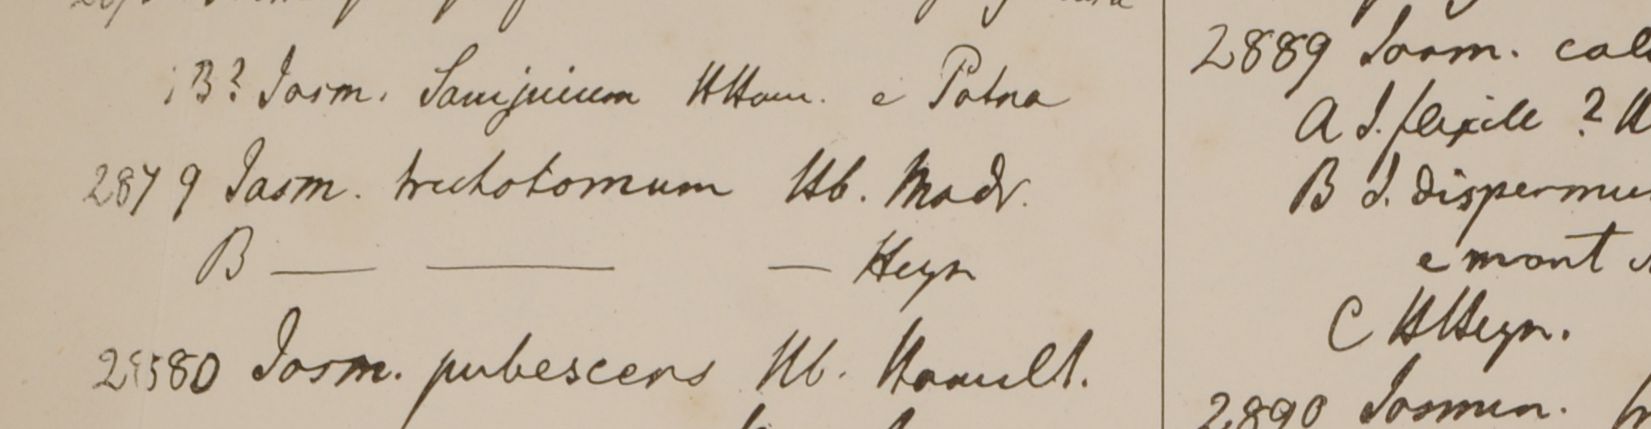 B? Jasm. HHam. e Patna
2879 Jasm. trichotomum Hb. Madr.
B — — — Heyn
2880 Jasm. pubescens Hb. Hamilt.
2889 Jasm. cal
A J. flexile ? H
B J. dispermu
e mont
C HHeyn.
2890 Jasmin.